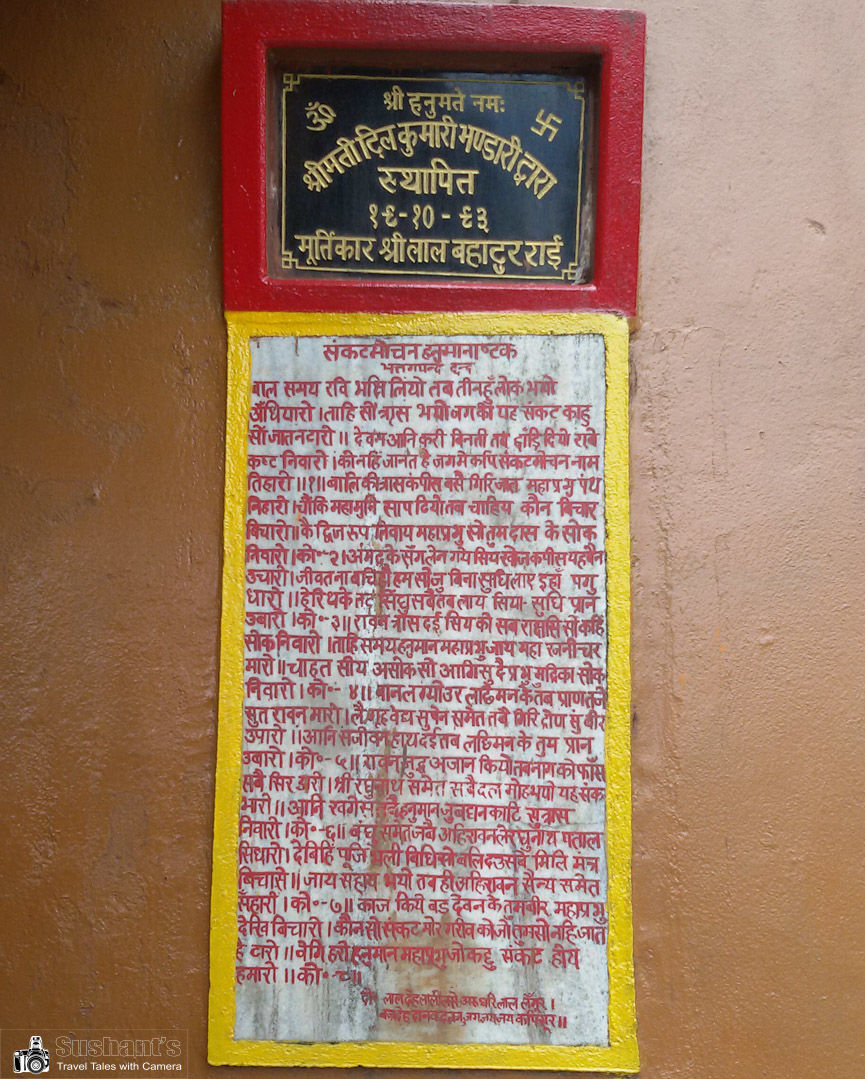 श्री हनुमते नमः
ॐ
श्रीमती दिल कुमारी भण्डारी द्वारा
स्थापित
१९-१० - ९३
मूर्तिकार श्री लाल बहादुर राई
संकटमोचन हनुमानाष्टक
बाल समय रवि भक्षि लियो तब तीनहुँ लोक भयो
अँधियारो । ताहि सों त्रास भयो जग को यह संकट काहु
सों जात न टारो ॥ देवन आनि करी बिनती तब छाँड़ि दियो रवि
कष्ट निवारो । को नहिं जानत है जगमें कपि संकटमोचन नाम
तिहारो ॥१॥ बालि की त्रास कपीस बसै गिरि जात महाप्रभु पंथ
निहारो । चौंकि महामुनि साप दियो तब चाहिय कौन बिचार
बिचारो ॥ कै द्विज रूप लिवाय महाप्रभु सो तुम दास के सोक
निवारो । को॰-२। अंगद के सँग लेन गये सिय खोज कपीस यह बैन
उचारो । जीवत ना बचिहौ हम सों जु बिना सुधि लाए इहाँ पगु
धारो ॥ हेरि थके तट सिंधु सबै तब लाय सिया सुधि प्रान
उबारो । को॰-३॥ रावन त्रास दई सिय को सब राक्षसि सों कहि
सोक निवारो । ताहि समय हनुमान महाप्रभु जाय महा रजनीचर
मारो ॥ चाहत सीय असोक सों आगि सु दै प्रभु मुद्रिका सोक
निवारो । को॰- ४॥ बान लग्यो उर लछिमन के तब प्राण तजे
सुत रावन मारो । लै गृह वैद्य सुषेन समेत तबै गिरि द्रोण सु बीर
उपारो ॥ आनि सजीवन हाथ दई तब लछिमन के तुम प्रान
उबारो । को॰-५॥ रावन जुद्ध अजान कियो तब नाग को फाँस
सबै सिर डारो । श्री रघुनाथ समेत सबै दल मोह भयो यह संकट
भारी ॥ आनि खगेस तबै हनुमान जु बंधन काटि सुत्रास
निवारो । को॰-६॥ बंधु समेत जबै अहिरावन लै रघुनाथ पताल
सिधारो । देबिहिं पूजि भली बिधि सों बलि देउ सबै मिलि मंत्र
बिचारो ॥ जाय सहाय भयो तब ही अहिरावन सैन्य समेत
सँहारो । को॰-७॥ काज किये बड़ देवन के तुम बीर महाप्रभु
देखि बिचारो । कौन सो संकट मोर गरीब को जो तुमसों नहिं जात
है टारो ॥ बेगि हरो हनुमान महाप्रभु जो कछु संकट होय
हमारो ॥ को॰-८॥
दो॰ लाल देह लाली लसे अरु धरि लाल लँगूर ।
बज्र देह दानव दलन, जय जय जय कपि सूर ॥
Sushant's
Travel Tales with Camera